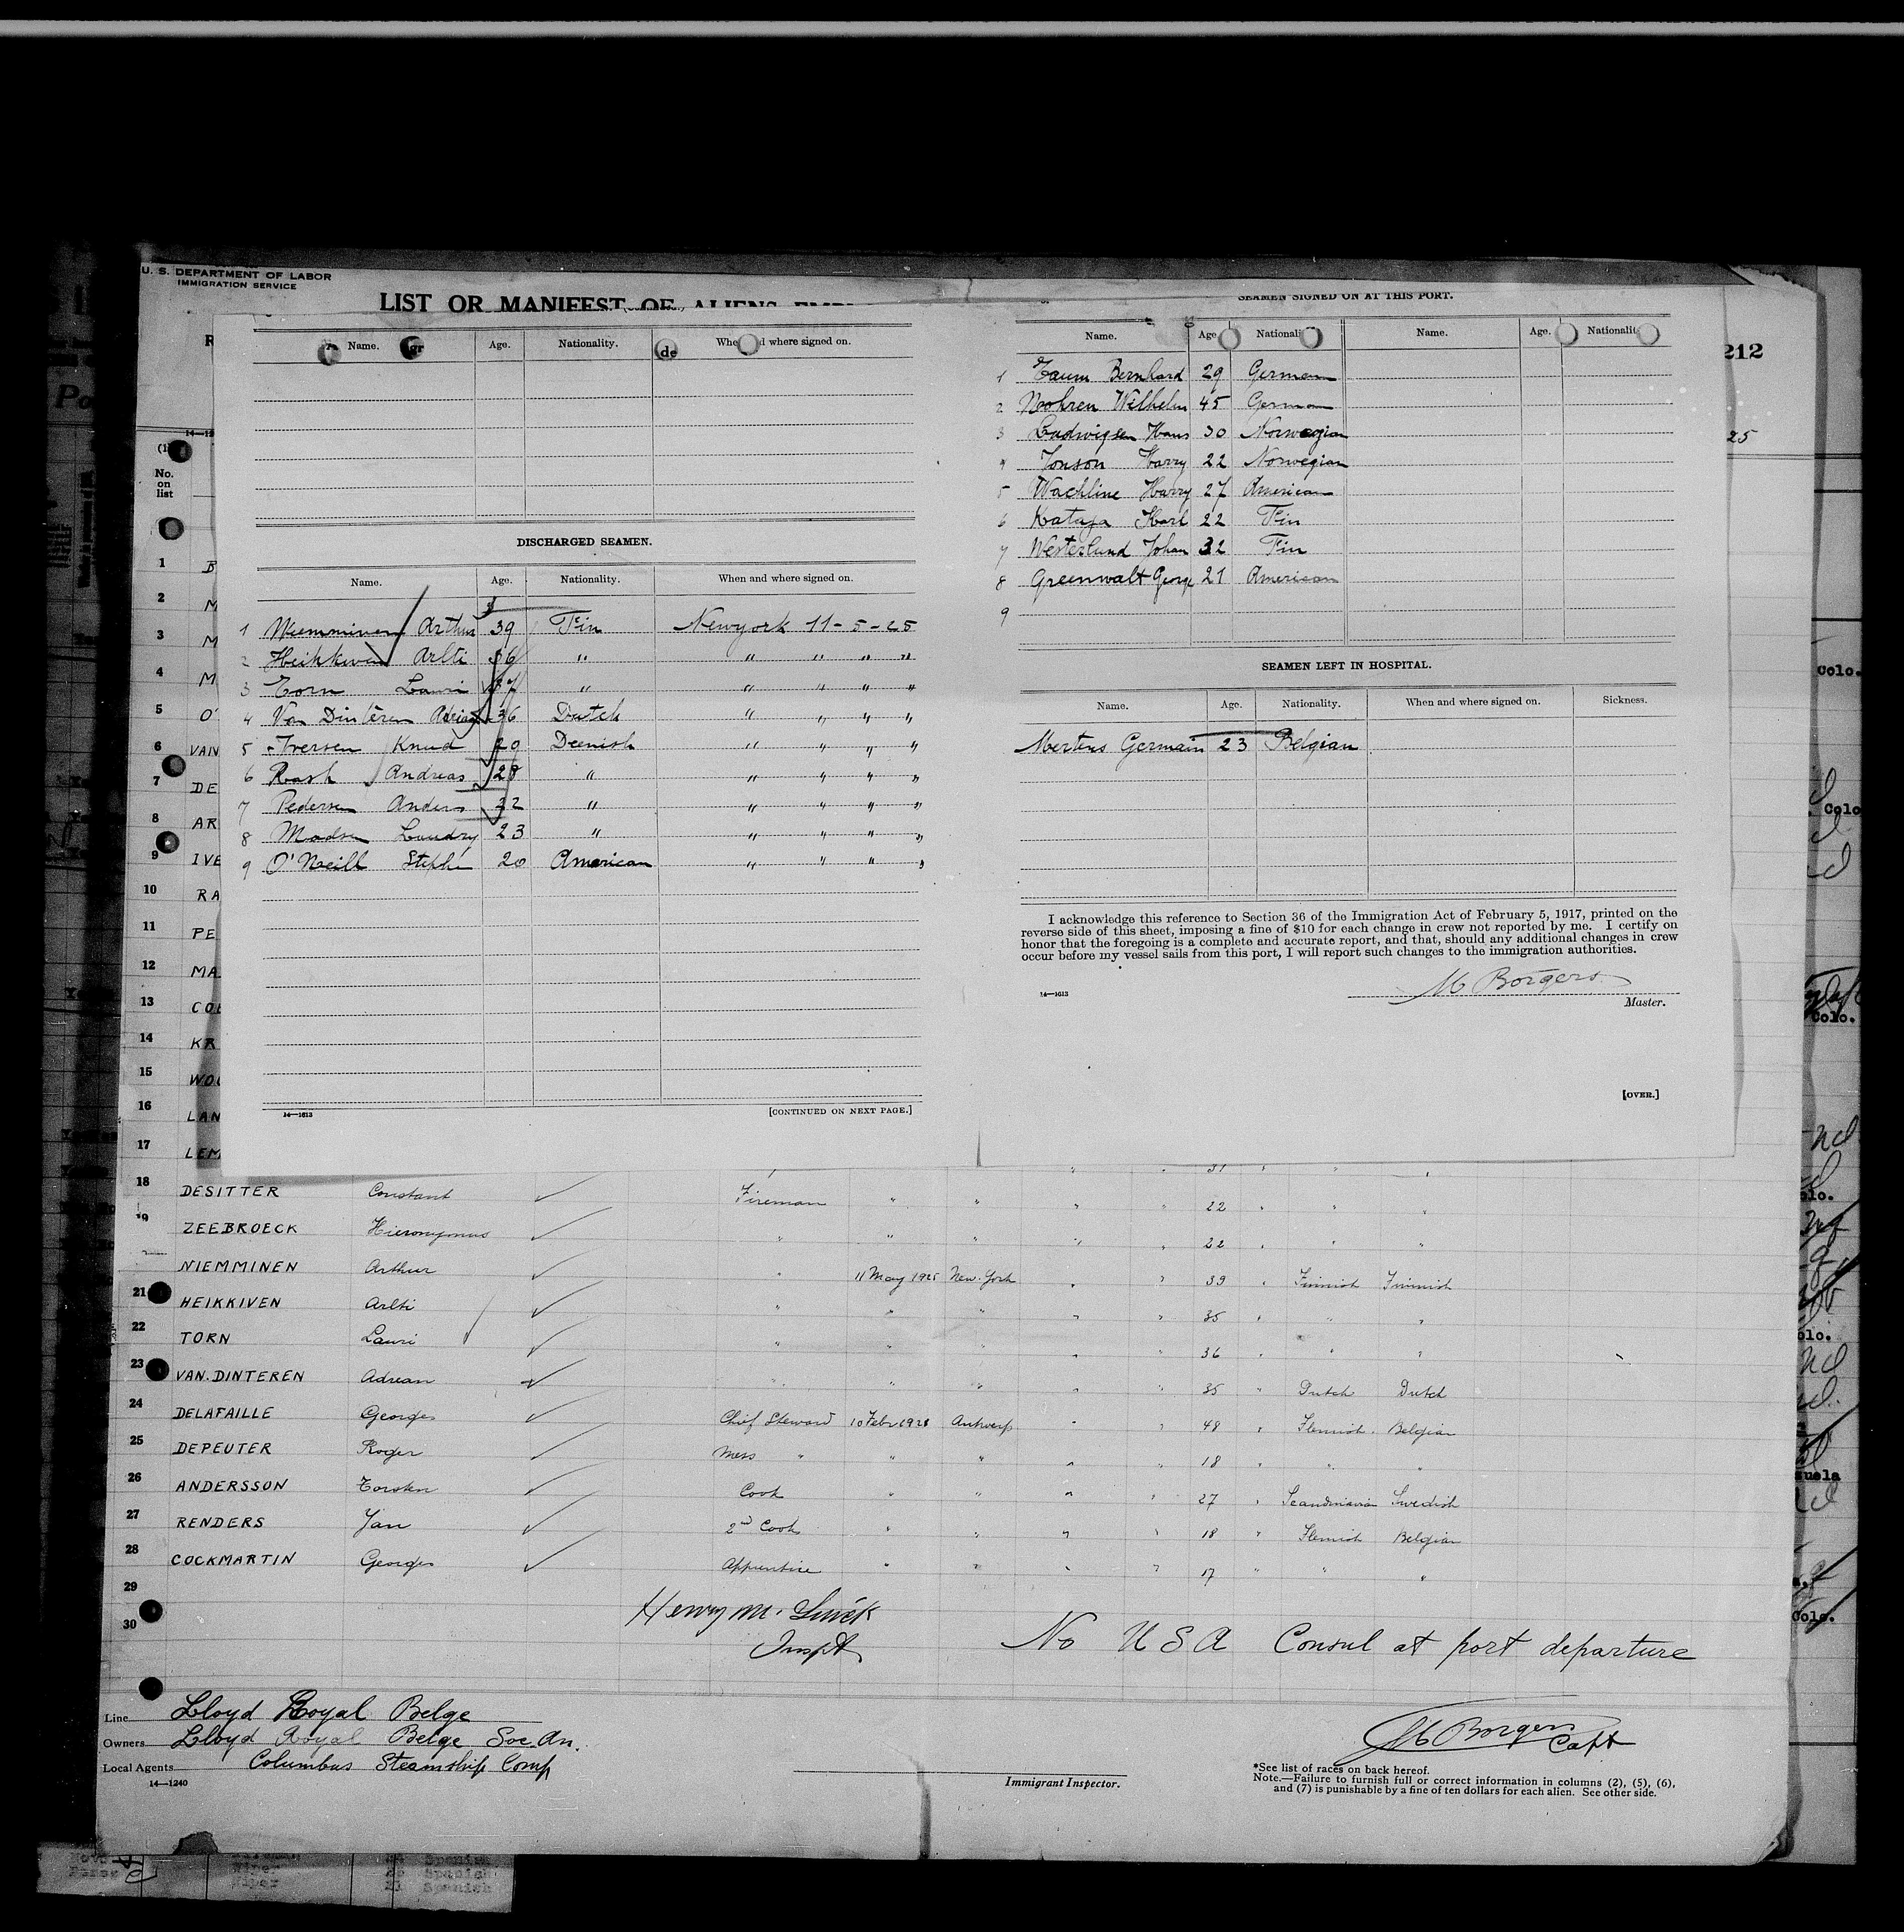 U. S. DEPARTMENT OF LABOR
IMMIGRATION SERVICE
LIST OR MANIFEST OF ALIENS
212
25
No.
on
list
Name. Age. Nationality. where signed on.
DISCHARGED SEAMEN.
Name. Age. Nationality. When and where signed on.
1 Niemminen Arthur 39 Fin Newyork 11-5-25
2 Heikkiven Arlti 36 " " " " "
3 Torn Lauri 37 " " " " "
4 Van Dinteren Adrian 36 Dutch " " " "
5 Iversen Knud 20 Deenish " " " "
6 Rask Andreas 28 " " " " "
7 Pedersen Anders 32 " " " " "
8 Madsen Laudry 23 " " " " "
9 O'Neill Stephe 20 American " " " "
14—1613 [CONTINUED ON NEXT PAGE.]
SEAMEN SIGNED ON AT THIS PORT.
Name. Age Nationali Name. Age. Nationalit
1 Taum Bernhard 29 German
2 Nohren Wilhelm 45 German
3 Ludwigsen Hans 30 Norwegian
4 Jonson Harry 22 Norwegian
5 Wachline Harry 27 American
6 Kataja Karl 22 Fin
7 Westerlund Johan 32 Fin
8 Greenwalt George 21 American
9
SEAMEN LEFT IN HOSPITAL.
Name. Age. Nationality. When and where signed on. Sickness.
Mertens Germain 23 Belgian
I acknowledge this reference to Section 36 of the Immigration Act of February 5, 1917, printed on the
reverse side of this sheet, imposing a fine of $10 for each change in crew not reported by me. I certify on
honor that the foregoing is a complete and accurate report, and that, should any additional changes in crew
occur before my vessel sails from this port, I will report such changes to the immigration authorities.
M Borgers
14—1613 Master.
[OVER.]
1 B
2 M
3 M
4 M
5 O'
6 VAN
7 DE
8 AR
9 IVE
10 RA
11 PE
12 MA
13 CO
14 KR
15 WO
16 LAN
17 LEM 31
18 DESITTER Constant Fireman " " " " 22 " " "
19 ZEEBROECK Hieronymus " " " " " 22 " " "
NIEMMINEN Arthur " 11 May 1925 New-York " " 39 " Finnish Finnish
21 HEIKKIVEN Arlti " " " " " 35 " " "
22 TORN Lauri " " " " " 36 " " "
23 VAN.DINTEREN Adrean " " " " " 35 " Dutch Dutch
24 DELAFAILLE Georges Chief Steward 10 Febr 1925 Antwerp " " 48 " Flemish Belgian
25 DEPEUTER Roger Mess " " " " " 18 " " "
26 ANDERSSON Torsten Cook " " " " 27 " Scandinavia Swedish
27 RENDERS Jan 2nd Cook " " " " 18 " Flemish Belgian
28 COCKMARTIN Georges Apprentice " " " " 17 " " "
29
30
Henry M.
Inspt
No U S A Consul at port departure
Line Lloyd Royal Belge
Owners Lloyd Royal Belge Soc. An.
Local Agents Columbus Steamship Comp
14—1240
M Borgers Capt
Immigrant Inspector.
*See list of races on back hereof.
Note.—Failure to furnish full or correct information in columns (2), (5), (6),
and (7) is punishable by a fine of ten dollars for each alien. See other side.
Colo.
Colo
Colo.
Colo.
Wiper 26 Spanish
Wiper 21 Spanish